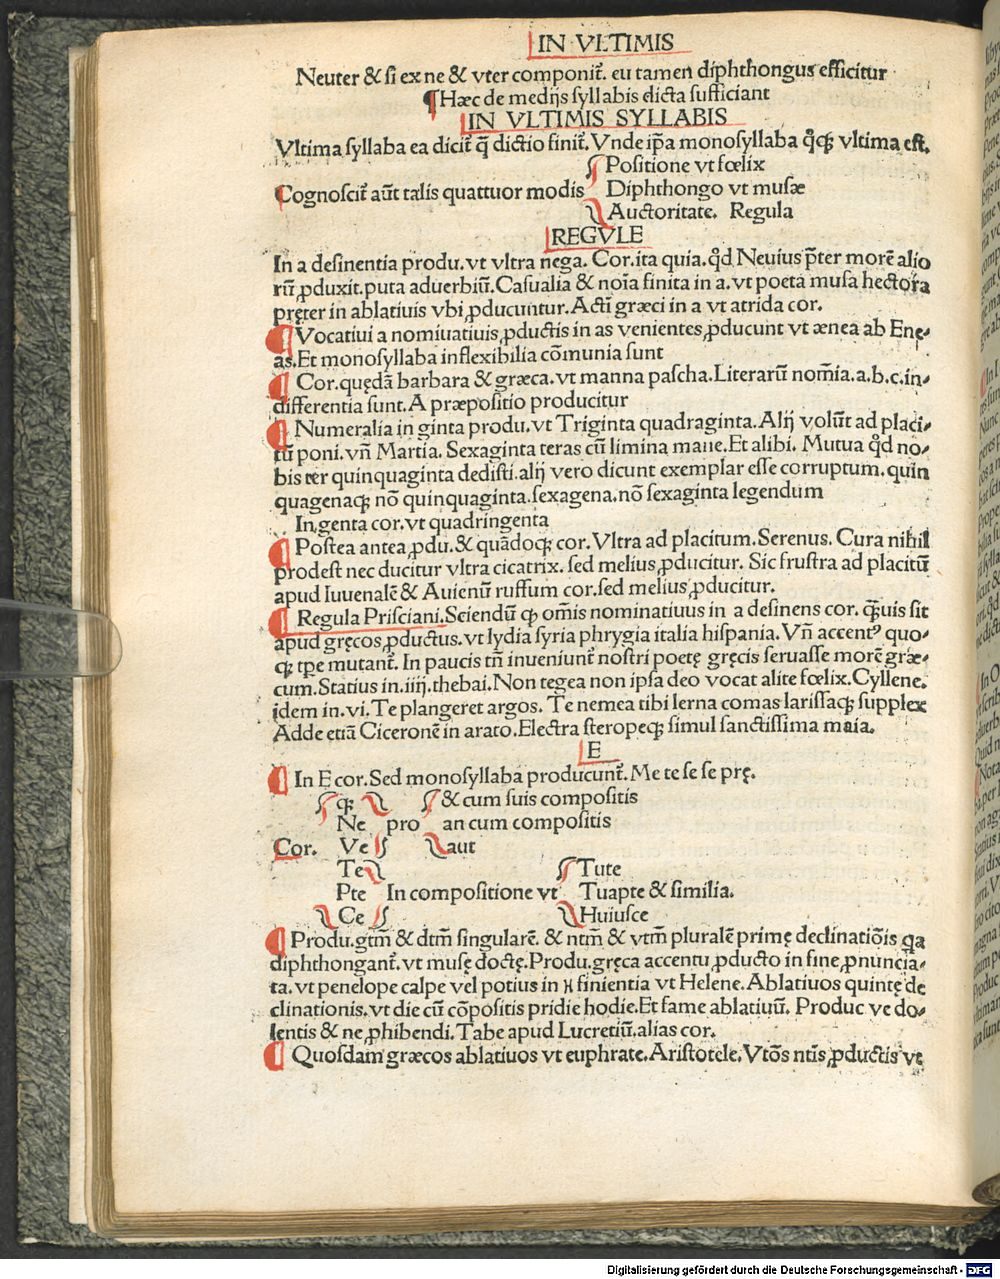 IN VLTIMIS
Neuter & si ex ne & vter componit᷑. eu tamen diphthongus efficitur
¶ Hæc de medijs syllabis dicta sufficiant
IN VLTIMIS SYLLABIS
Vltima syllaba ea dicit᷑ q̄ dictio finit᷑. Vnde ip̄a monosyllaba q̊qꝫ vltima est.
Positione vt fœlix
Cognoscit᷑ aūt talis quattuor modis Diphthongo vt musæ
Auctoritate. Regula
REGVLE
In a desinentia produ. vt vltra nega. Cor. ita quia. q̊d Neuius p̄ter morē alio
rū ꝓduxit. puta aduerbiū. Casualia & noīa finita in a. vt poeta musa hectora
pręter in ablatiuis vbi ꝓducuntur. Actī græci in a vt atrida cor.
¶ Vocatiui a nomiuatiuis ꝓductis in as venientes ꝓducunt vt ænea ab Enę-
as. Et monosyllaba inflexibilia cōmunia sunt
¶ Cor. quędā barbara & græca. vt manna pascha. Literarū nom̄ia. a. b. c. in-
differentia sunt. A præpositio producitur
¶ Numeralia in ginta produ. vt Triginta quadraginta. Alij volūt ad placi-
tū poni. vn̄ Martia. Sexaginta teras cū limina mane. Et alibi. Mutua q̊d no-
bis ter quinquaginta dedisti. alij vero dicunt exemplar esse corruptum. quin
quagenaqꝫ nō quinquaginta. sexagena. nō sexaginta legendum
In genta cor. vt quadringenta
¶ Postea antea ꝓdu. & quādoqꝫ cor. Vltra ad placitum. Serenus. Cura nihil
prodest nec ducitur vltra cicatrix. sed melius ꝓducitur. Sic frustra ad placitū
apud Iuuenalē & Auienū ruffum cor. sed melius ꝓducitur.
¶ Regula Prisciani. Sciendū ꝙ om̄is nominatiuus in a desinens cor. q̄uis sit
apud gręcos ꝓductus. vt lydia syria phrygia italia hispania. Vn̄ accentꝰ quo-
qꝫ tp̄e mutant᷑. In paucis tn̄ inueniunt᷑ nostri poetę gręcis seruasse morē græ-
cum. Statius in. iiij. thebai. Non tegea non ipsa deo vocat alite fœlix. Cyllene.
idem in. vi. Te plangeret argos. Te nemea tibi lerna comas larissaqꝫ supplex
Adde etiā Ciceronē in arato. Electra steropeqꝫ simul sanctissima maia.
E
¶ In E cor. Sed monosyllaba producunt᷑. Me te se se prę.
qꝫ & cum suis compositis
Ne pro an cum compositis
Cor. Ve aut
Te Tute
Pte In compositione vt Tuapte & similia.
Ce Huiusce
¶ Produ. gtm̄ & dtm̄ singularē. & ntm̄ & vtm̄ pluralē primę declinatiōis qa
diphthongant᷑. vt musę doctę. Produ. gręca accentu ꝓducto in fine ꝓnuncia-
ta. vt penelope calpe vel potius in ꞩ finientia vt Helene. Ablatiuos quintę de
clinationis. vt die cū cōpositis pridie hodie. Et fame ablatiuū. Produc ve do-
lentis & ne ꝓhibendi. Tabe apud Lucretiū. alias cor.
¶ Quosdam græcos ablatiuos vt euphrate. Aristotele. Vtōs ntīs ꝓductis vt
Digitalisierung gefördert durch die Deutsche Forschungsgemeinschaft - DFG